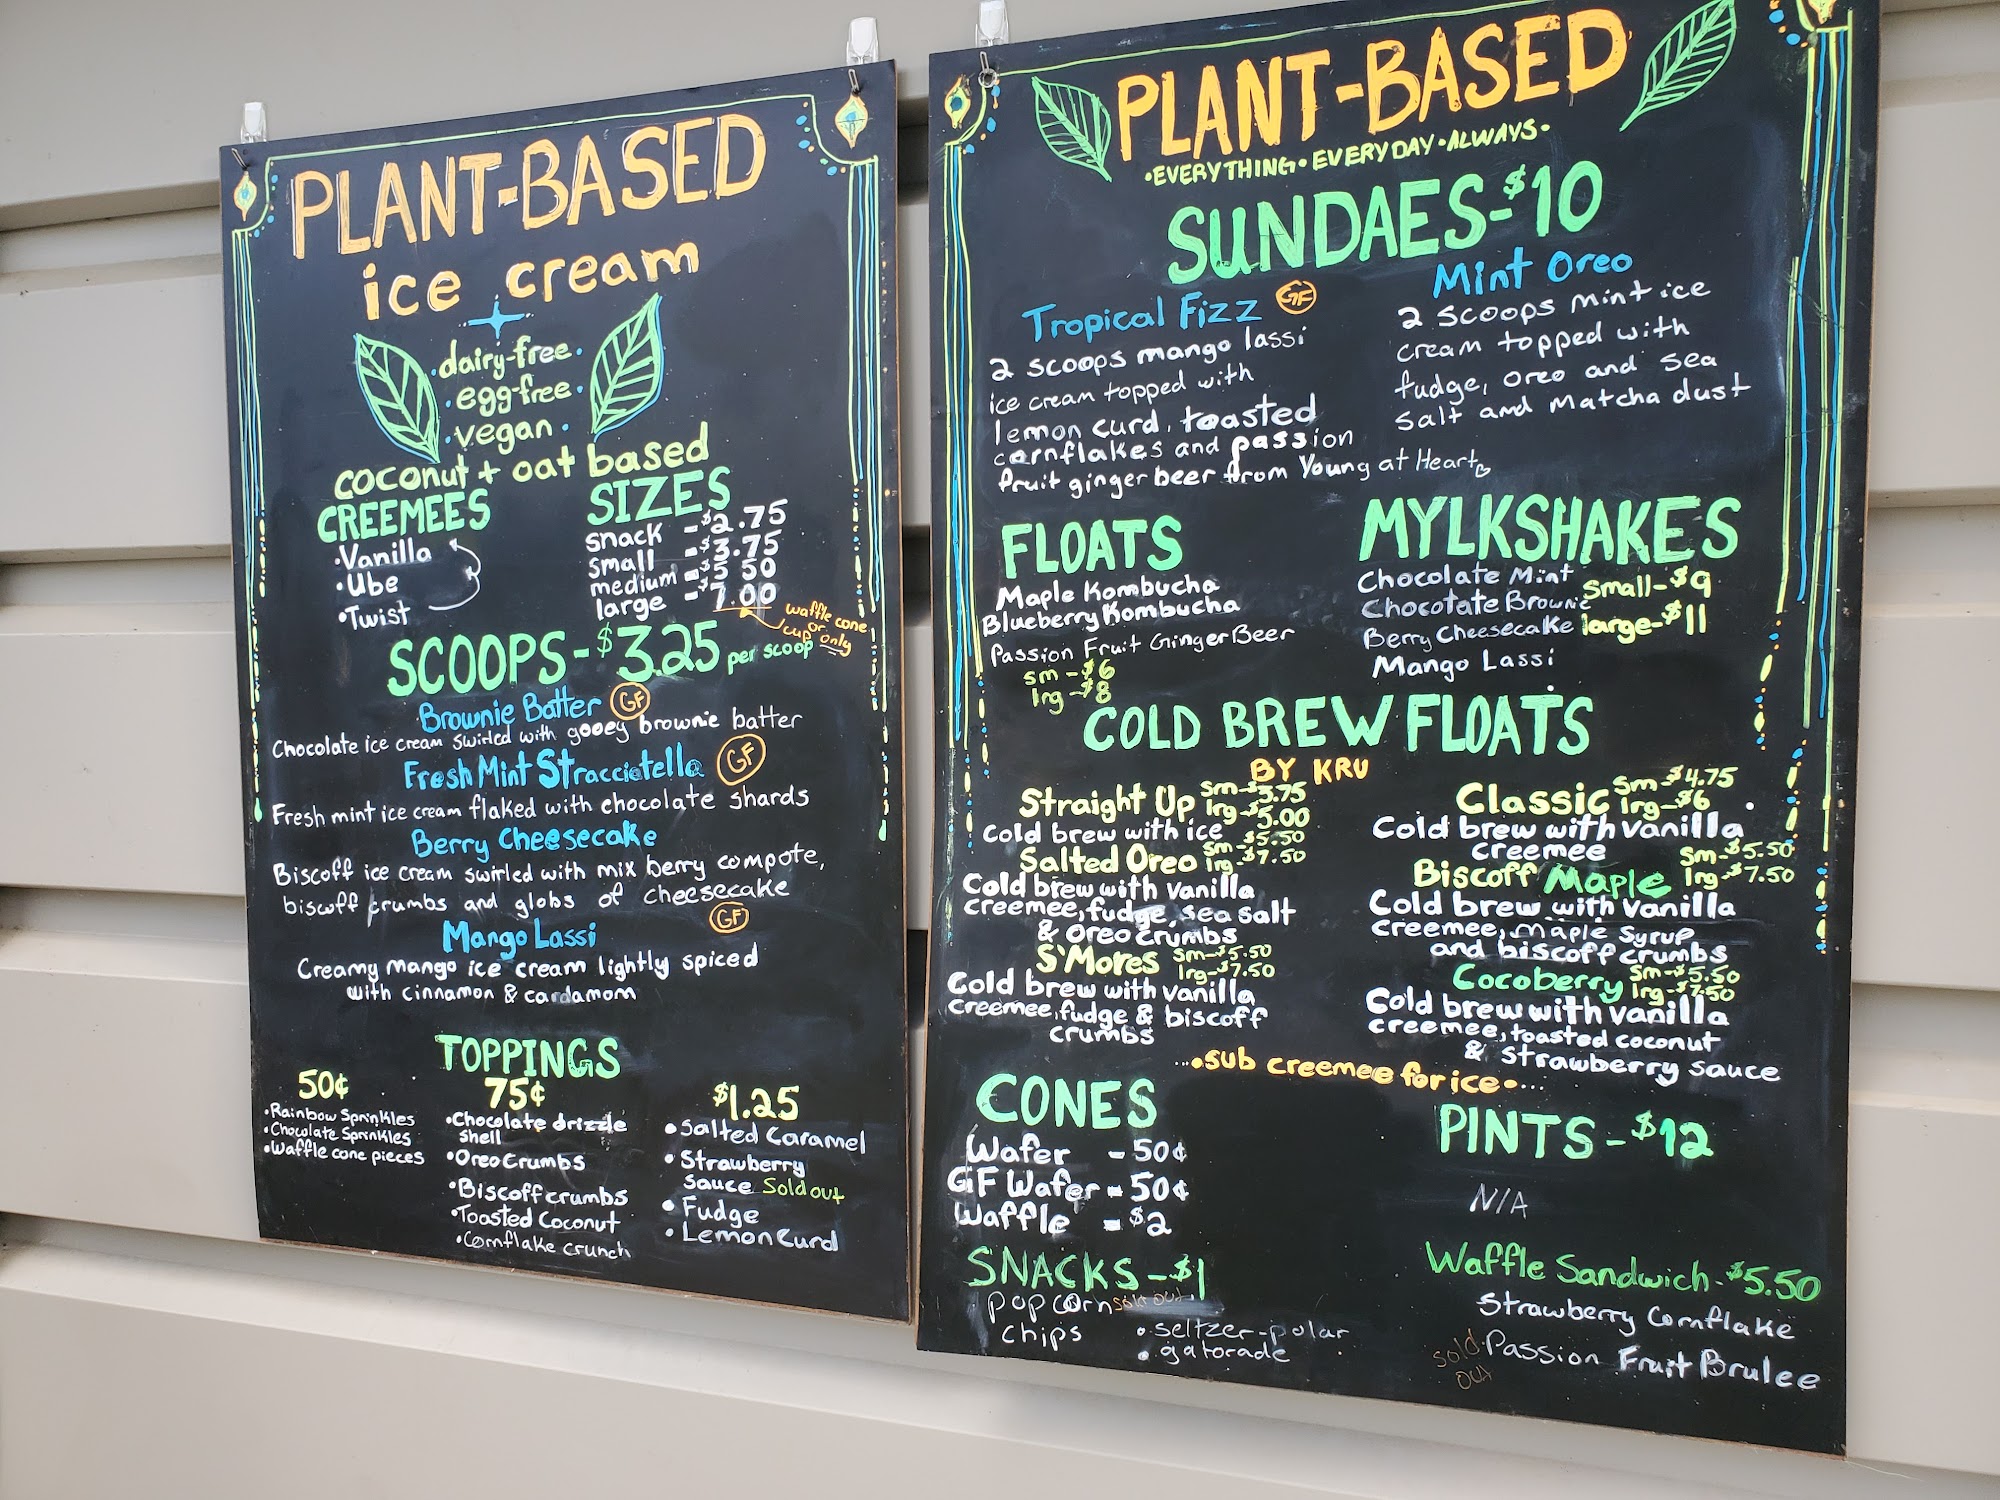 PLANT-BASED
ice cream
dairy-free
egg-free
vegan
coconut + oat based
CREEMEES
•Vanilla
•Ube
•Twist
SIZES
snack -$2.75
small -$3.75
medium -$5.50
large -$7.00
waffle cone
or
cup only
SCOOPS-$3.25 per scoop
Brownie Batter GF
Chocolate ice cream swirled with gooey brownie batter
Fresh Mint Stracciatella GF
Fresh mint ice cream flaked with chocolate shards
Berry Cheesecake
Biscoff ice cream swirled with mix berry compote,
biscoff crumbs and globs of cheesecake
Mango Lassi GF
Creamy mango ice cream lightly spiced
with cinnamon & cardamom
TOPPINGS
50¢
•Rainbow Sprinkles
•Chocolate Sprinkles
•Waffle cone pieces
75¢
•Chocolate drizzle
shell
•Oreo Crumbs
•Biscoff crumbs
•Toasted Coconut
•Cornflake crunch
$1.25
•Salted Caramel
•Strawberry
sauce Sold out
•Fudge
•Lemon Curd
PLANT-BASED
•EVERYTHING•EVERYDAY•ALWAYS•
SUNDAES-$10
Tropical Fizz GF
2 scoops mango lassi
ice cream topped with
lemon curd, toasted
cornflakes and passion
fruit ginger beer from Young at Heart
Mint Oreo
2 scoops mint ice
cream topped with
fudge, oreo and sea
salt and matcha dust
FLOATS
Maple Kombucha
Blueberry Kombucha
Passion Fruit Ginger Beer
sm -$6
lrg -$8
MYLKSHAKES
Chocolate Mint
Chocolate Brownie
Berry Cheesecake
Mango Lassi
Small-$9
large-$11
COLD BREW FLOATS
BY KRU
Straight Up sm-$3.75
lrg-$5.00
Cold brew with ice
Salted Oreo sm-$5.50
lrg-$7.50
Cold brew with vanilla
creemee, fudge, sea salt
& Oreo crumbs
S'Mores sm-$5.50
lrg-$7.50
Cold brew with vanilla
creemee, fudge & biscoff
crumbs
Classic sm-$4.75
lrg-$6
Cold brew with vanilla
creemee
Biscoff Maple sm-$5.50
lrg-$7.50
Cold brew with vanilla
creemee, maple syrup
and biscoff crumbs
Cocoberry sm-$5.50
lrg-$7.50
Cold brew with vanilla
creemee, toasted coconut
& strawberry sauce
...•sub creemee for ice•...
CONES
Wafer - 50¢
GF Wafer - 50¢
Waffle - $2
PINTS-$12
N/A
SNACKS-$1
popcorn sold out
chips
•seltzer-polar
•gatorade
Waffle Sandwich-$5.50
Strawberry Cornflake
sold out Passion Fruit Brulee